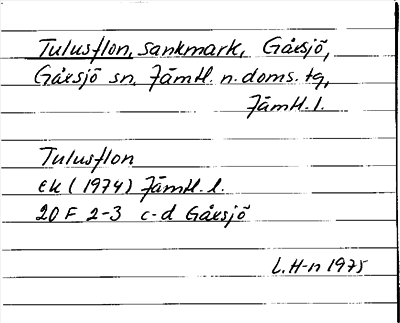 Tulusflon, sankmark, Gåxsjö,
Gåxsjö sn, Jämtl. n. doms. tg,
Jämtl. l.
Tulusflon
ek (1974) Jämtl. l.
20 F 2-3 c-d Gåxsjö
L. H-n 1975